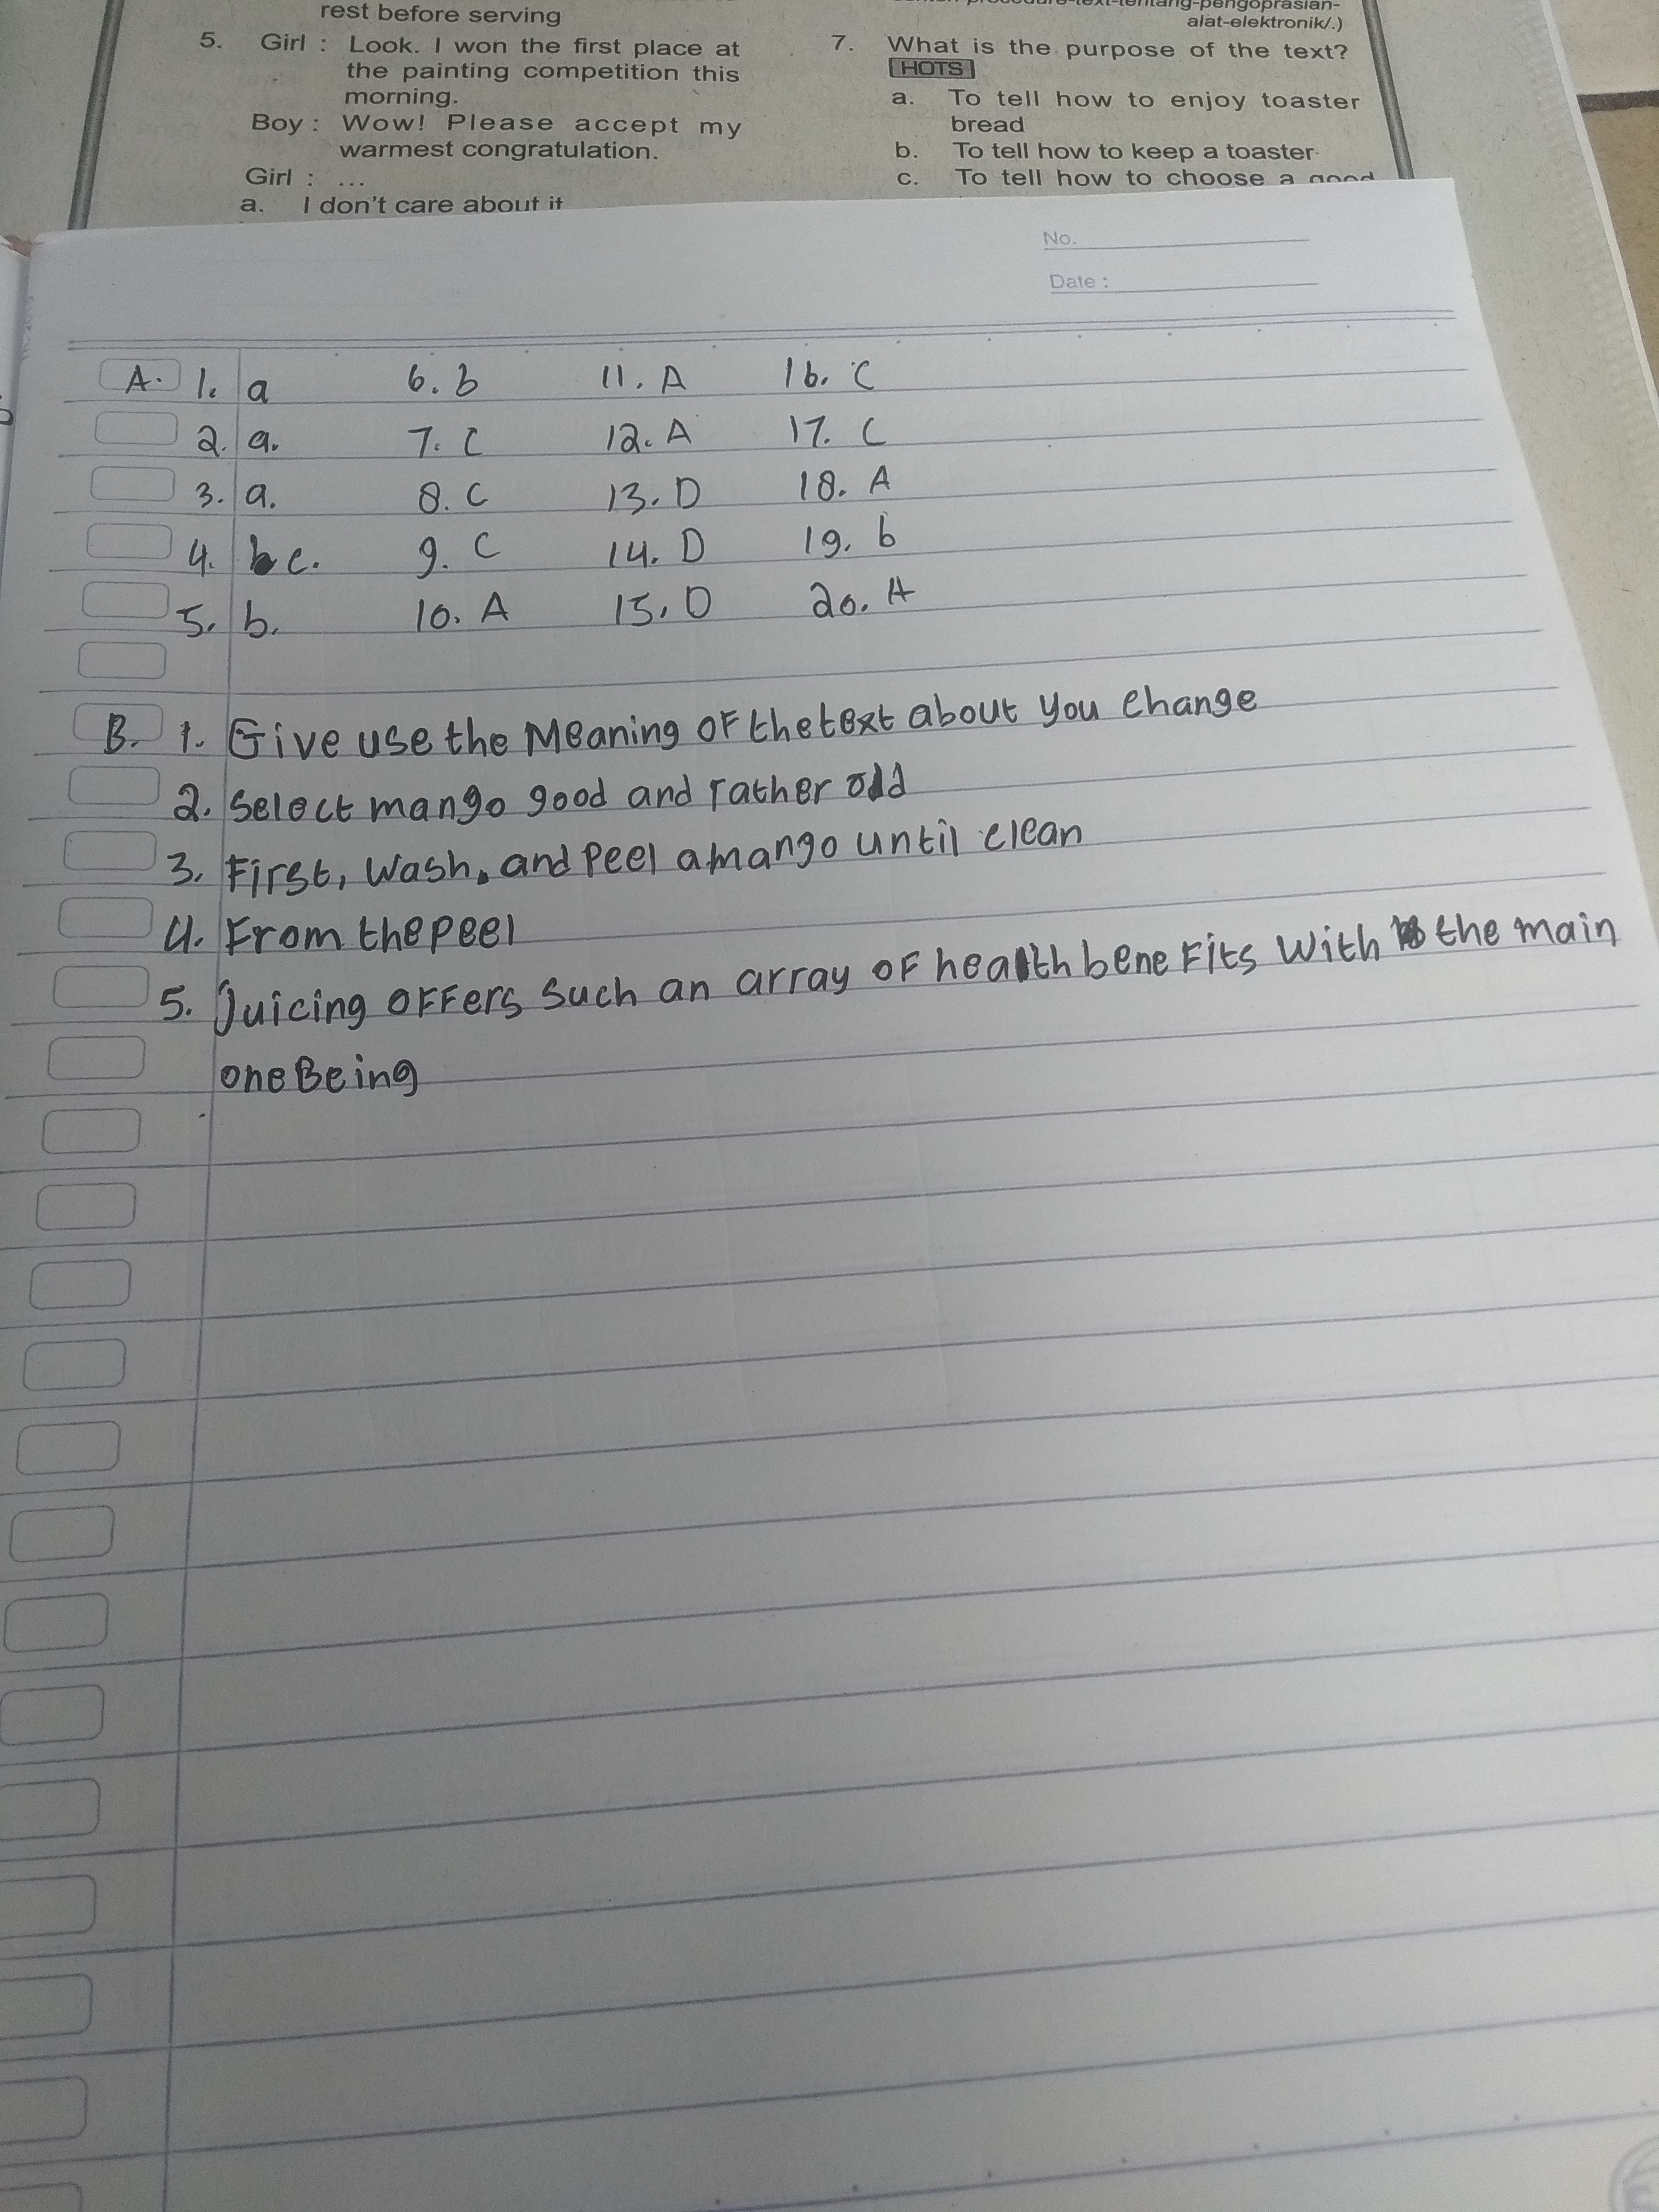 rest before serving
5. Girl : Look. I won the first place at
the painting competition this
morning.
Boy : Wow! Please accept my
warmest congratulation.
Girl : ...
a. I don't care about it
alat-elektronik/.)
7. What is the purpose of the text?
HOTS
a. To tell how to enjoy toaster
bread
b. To tell how to keep a toaster
c. To tell how to choose a good
No.
Date :
A. 1. a 6. b 11. A 16. C
2. a. 7. C 12. A 17. C
3. a. 8. C 13. D 18. A
4. c. 9. C 14. D 19. b
5. b. 10. A 15. D 20. A
B. 1. Give use the Meaning OF the text about you change
2. Select mango good and rather old
3. First, wash, and peel a mango until clean
4. From the peel
5. Juicing OFFers such an array OF health beneFits with the main
one Being